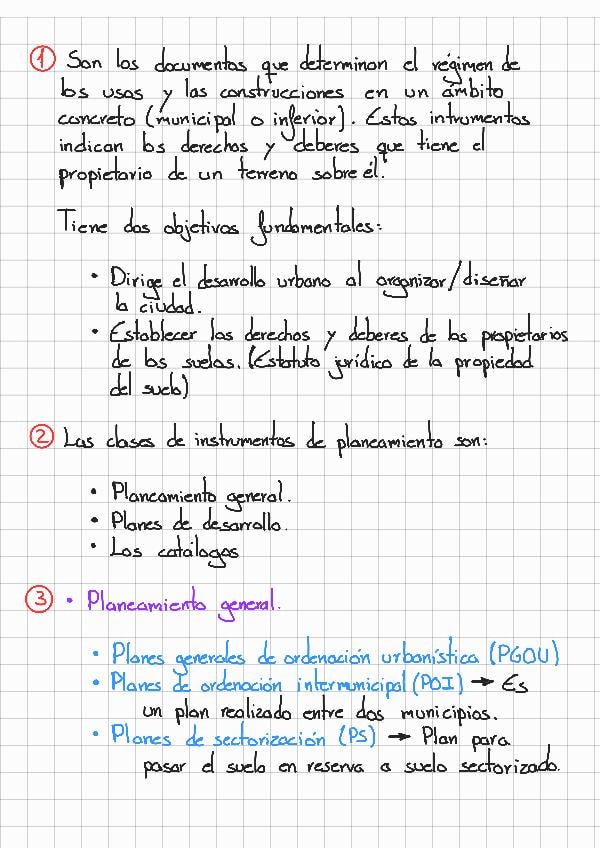 1 Son los documentos que determinan el régimen de
los usos y las construcciones en un ámbito
concreto (municipal o inferior). Estos intrumentos
indican los derechos y deberes que tiene el
propietario de un terreno sobre él.
Tiene dos objetivos fundamentales:
• Dirige el desarrollo urbano al organizar/diseñar
la ciudad.
• Establecer los derechos y deberes de los propietarios
de los suelos. (Estatuto jurídico de la propiedad
del suelo)
2 Las clases de instrumentos de planeamiento son:
• Planeamiento general.
• Planes de desarrollo.
• Los catálogos
3 • Planeamiento general.
• Planes generales de ordenación urbanística (PGOU)
• Planes de ordenación intermunicipal (POI) → Es
un plan realizado entre dos municipios.
• Planes de sectorización (PS) → Plan para
pasar el suelo en reserva a suelo sectorizado.